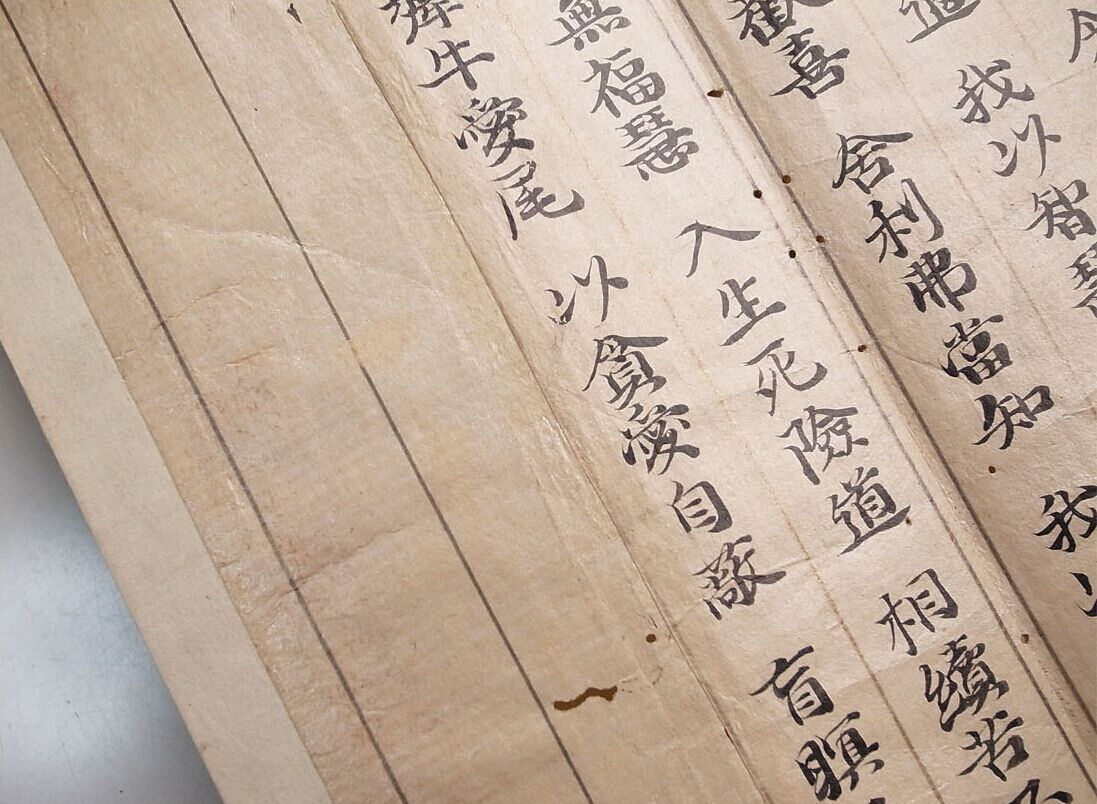 道 我以智慧
歡喜 舍利弗當知 我以
無福慧 入生死險道 相續苦不
犛牛愛尾 以貪愛自蔽 盲瞑